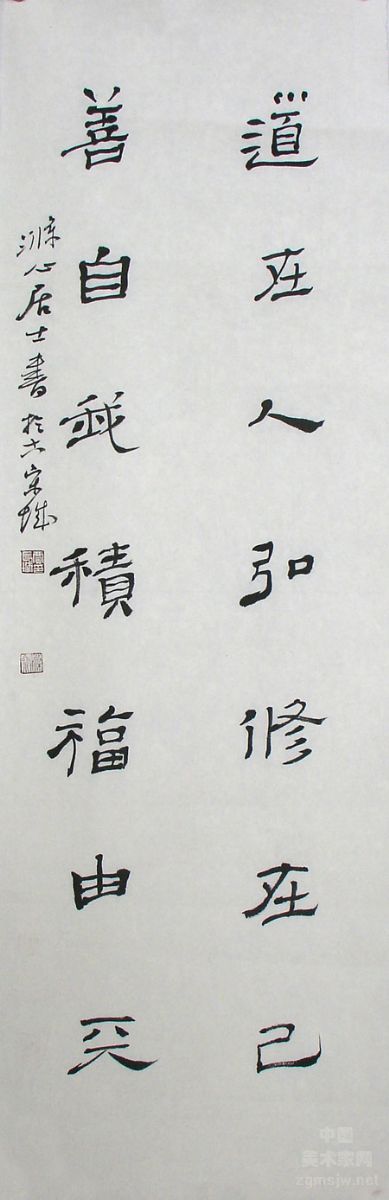 道在人弘修在己
善自我積福由天
心居士書於古宋城
中国
美术家网
zgmsjw.net